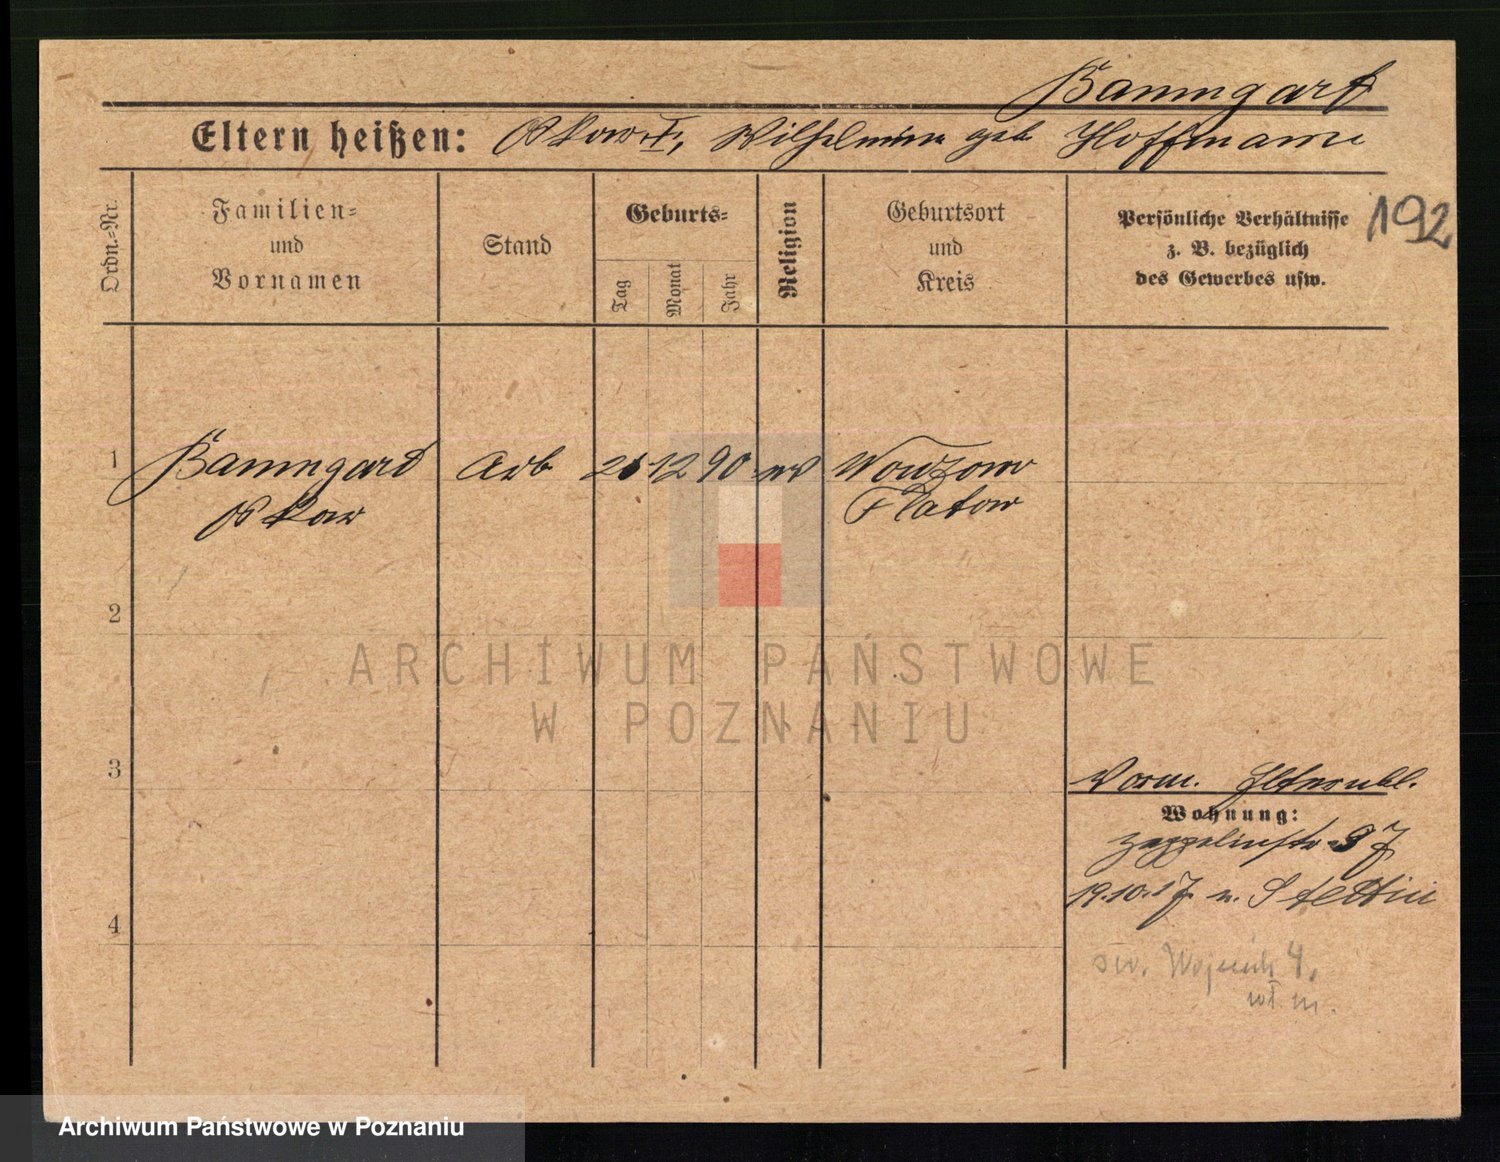 Baumgart
Eltern heißen: Wilhelmine geb Hoffmann
Ordn.-Nr.
Familien-
und
Vornamen
Stand
Geburts-
Tag
Monat
Jahr
Religion
Geburtsort
und
Kreis
Persönliche Verhältnisse
z. B. bezüglich
des Gewerbes usw.
192
1 Baumgard Arb 12 90 ev
Oskar Flatow
2
ARCHIWUM PAŃSTWOWE
W POZNANIU
3
Vorm.
Wohnung:
Zeppelinstr
19.10.17 n. Stettin
4
św. Wojciech 4.
Archiwum Państwowe w Poznaniu